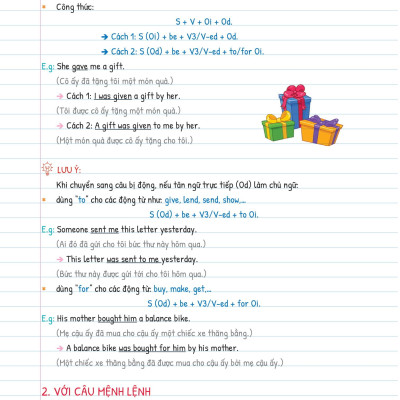 Công thức:
S + V + Oi + Od.
➔ Cách 1: S (Oi) + be + V3/V-ed + Od.
➔ Cách 2: S (Od) + be + V3/V-ed + to/for Oi.
E.g: She gave me a gift.
(Cô ấy đã tặng tôi một món quà.)
→ Cách 1: I was given a gift by her.
(Tôi được cô ấy tặng một món quà.)
→ Cách 2: A gift was given to me by her.
(Một món quà được cô ấy tặng cho tôi.)
LƯU Ý:
Khi chuyển sang câu bị động, nếu tân ngữ trực tiếp (Od) làm chủ ngữ:
dùng "to" cho các động từ như: give, lend, send, show,...
S (Od) + be + V3/V-ed + to Oi.
E.g: Someone sent me this letter yesterday.
(Ai đó đã gửi cho tôi bức thư này hôm qua.)
→ This letter was sent to me yesterday.
(Bức thư này được gửi tới cho tôi hôm qua.)
dùng "for" cho các động từ: buy, make, get,...
S (Od) + be + V3/V-ed + for Oi.
E.g: His mother bought him a balance bike.
(Mẹ cậu ấy đã mua cho cậu ấy một chiếc xe thăng bằng.)
→ A balance bike was bought for him by his mother.
(Một chiếc xe thăng bằng đã được mua cho cậu ấy bởi mẹ cậu ấy.)
2. VỚI CÂU MỆNH LỆNH